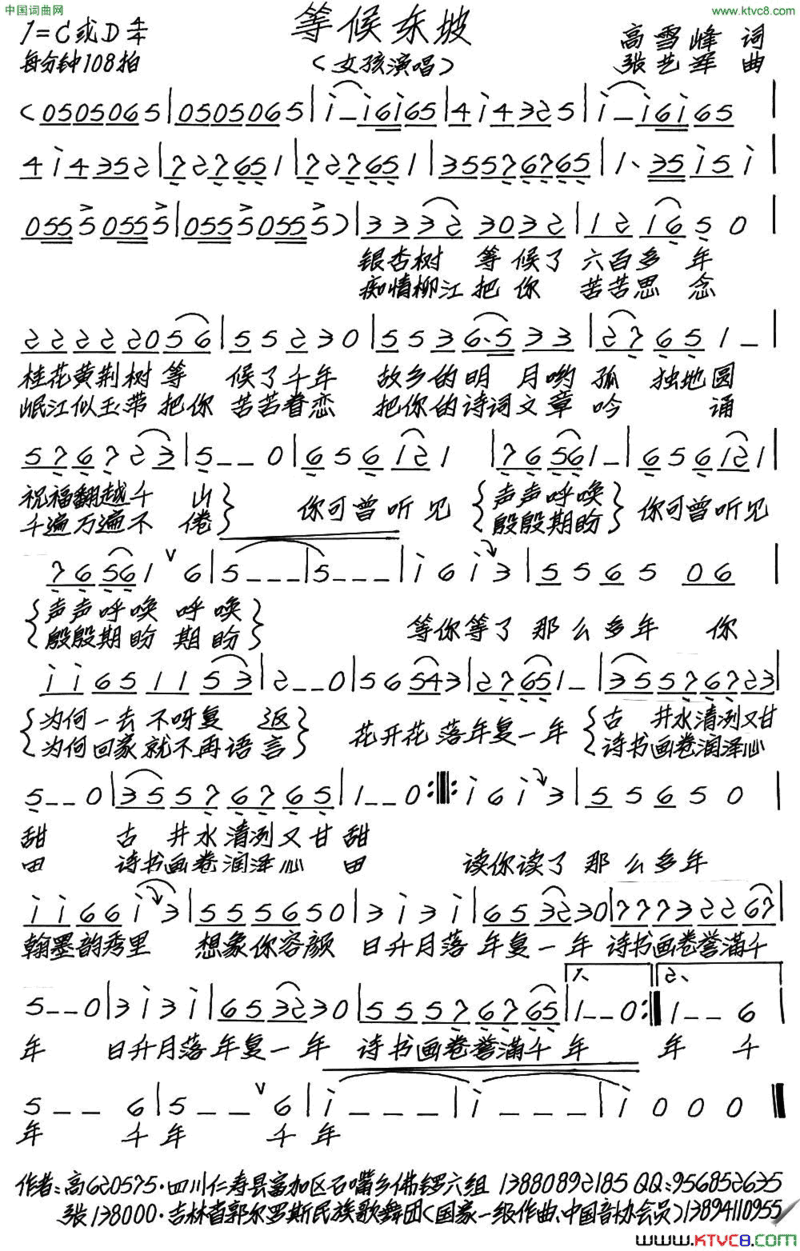 中国词曲网
www.ktvc8.com
1=C或D 4/4
等候东坡
高雪峰 词
每分钟108拍
(女孩演唱)
张艺军 曲
(0505065|0505065|i_i6i65|4i4325|i_i6i65|
4i4352|727651|727651|35576765|1、35i5i|
055505550555|05550555)|3332 3032|121650|
银杏树 等候了 六百多年
痴情柳江把你 苦苦思念
22222056|55230|5536·533|27651_|
桂花黄荆树等 候了千年 故乡的明 月哟孤 独地圆
岷江似玉带把你 苦苦眷恋 把你的诗词文章吟 诵
576723|5__0|656121|76561_|656121|
祝福翻越千 山 你可曾听见 声声呼唤 你可曾听见
千遍万遍不 倦 殷殷期盼
76561 6|5___|5___|i6i3|5565 06|
声声呼唤 呼唤 等你等了 那么多年 你
殷殷期盼 期盼
ii651153|2__0|56543|27651_|35576723|
为何一去不呀复 返 花开花落年复一年 古 井水清洌又甘
为何回家就不再语言 诗书画卷润泽心
5__0|35576765|1__0:‖:i6i3|55650|
甜 古 井水清洌又甘甜
田 诗书画卷润泽心 田 读你读了 那么多年
ii66i3|555650|3i3i|6532230|77732267|
翰墨韵秀里 想象你容颜 日升月落年复一年 诗书画卷誉满千
1、 2、
5__0|3i3i|6532230|55576765|1__0:‖1__6
年 日升月落年复一年 诗书画卷誉满千年 年 千
5__6|5__6|i___|i___|i000‖
年 千年 千年
作者:高620575·四川仁寿县富加区石嘴乡佛锣六组 13880892185 QQ:956852635
张138000·吉林省郭尔罗斯民族歌舞团(国家一级作曲、中国音协会员)13894110955
www.KTVC8.com